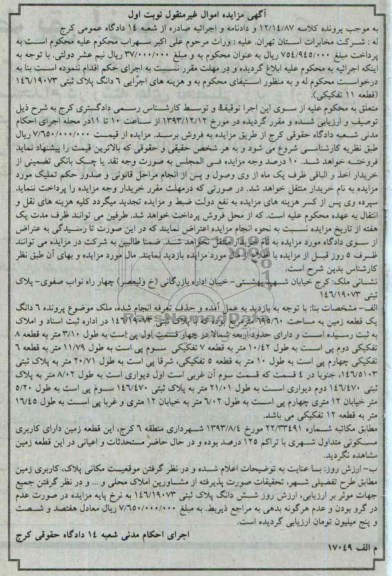 آگهی مزایده اموال غیرمنقول نوبت اول
به موجب پرونده کلاسه ۱۲/۱۴/۸۷ و دادنامه و اجرائیه صادره از شعبه ۱۴ دادگاه عمومی کرج
له : شرکت مخابرات استان تهران، علیه : وراث مرحوم علی اکبر سهراب محکوم علیه محکوم است به
پرداخت مبلغ ۷۵۴/۹۴۵/۰۰۰ ریال به عنوان محکوم به و مبلغ ۳۷/۰۰۰/۰۰۰ ریال نیم عشر دولتی، با توجه به
اینکه اجرائیه به محکوم علیه ابلاغ گردیده و در مهلت مقرر نسبت به اجرای حکم اقدام ننموده است بنا به
درخواست محکوم له و به منظور استیفای محکوم به و هزینه های اجرایی ۶ دانگ پلاک ثبتی ۱۴۶/۱۹۰۷۳
(قطعه ۱۱ تفکیکی)
متعلق به محکوم علیه از سوی این اجرا توقیف و توسط کارشناس رسمی دادگستری کرج به شرح ذیل
توصیف و ارزیابی شده و مقرر گردیده در مورخ ۱۳۹۳/۱۲/۱۲ از ساعت ۱۰ تا ۱۱در محله اجرای احکام
مدنی شعبه دادگاه حقوقی کرج از طریق مزایده به فروش برسد. مزایده از قیمت ۷/۶۵۰/۰۰۰/۰۰۰ ریال
طبق نظریه کارشناسی شروع می شود و به هر شخص حقیقی و حقوقی که بالاترین قیمت را پیشنهاد نماید
فروخته خواهد شد. ۱۰ درصد وجه مزایده فی المجلس به صورت وجه نقد یا چک بانکی تضمینی از
خریدار اخذ و الباقی ظرف یک ماه از وی وصول و پس از انجام مراحل قانونی و صدور حکم تملیک مورد
مزایده به نام خریدار منتقل خواهد شد. در صورتی که درمهلت مقرر خریدار وجه مزایده را پرداخت ننماید
سپرده وی پس از کسر هزینه های مزایده به نفع دولت ضبط و مزایده تجدید میگردد کلیه هزینه های نقل و
انتقال به عهده محکوم علیه است. که از محل فروش پرداخت خواهد شد. طرفین می توانند ظرف مدت یک
هفته از تاریخ مزایده نسبت به نحوه انجام مزایده اعتراض نمایند که در این صورت تا رسیدگی به اعتراض
از سوی دادگاه مورد مزایده به نام خریدار منتقل نخواهد شد. ضمنا طالبین به شرکت در مزایده می توانند
ظرف ۵ روز قبل از مزایده با مورد مزایده بازدید نمایند. مال مورد مزایده و بهای آن طبق نظر
کارشناس بدین شرح است.
نشانی ملک: کرج خیابان شهید بهشتی- خیابان اداره بازرگانی (خ ولیعصر) چهار راه نواب صفوی- پلاک
ثبتی ۱۴۶/۱۹۰۷۳
الف- مشخصات بنا: با توجه به بازدید به عمل آمده و حذف تفرقه انجام شده، ملک موضوع پرونده ۶ دانگ
یک قطعه زمین به مساحت مترمربع بوده که با پلاک ثبتی ۱۴۶/۱۹۰۷۳ در اداره ثبت اسناد و املاک
به ثبت رسیده است و دارای حدود اربعه شمالا در چهار قسمت اول پی است به طول ۳/۱۰ متر به قطعه ۸
تفکیکی دوم پی است به طول ۱۰/۴۲ متر به قطعه ۷ تفکیکی سوم پی است به طول ۱۱/۷۹ متر به قطعه ۶
تفکیکی چهارم پی است به طول ۱۰ متر به قطعه ۵ تفکیکی، شرقا پی است به طول ۲۰/۷۱ متر به پلاک ثبتی
۱۴۷/۵۱۰۳، جنوبا در ۴ قسمت که قسمت سوم آن غربی است اول دیواری است به طول ۸/۰۲ متر به پلاک
ثبتی ۱۴۶/۴۷۰ دوم دیواری است به طول ۲۱/۰۱ متر به پلاک ثبتی ۱۴۶/۴۷۰ سوم پی است به طول ۵/۲۰
متر خیابان ۱۲ متری چهارم پی است به طول ۶/۰۲ متر به خیابان ۱۲ متری و غربا پی است به طول ۱۶/۴۵
متر به قطعه ۱۲ تفکیکی می باشد.
مطابق مکاتبه شماره ۲۲/۳۳۴۹۱ مورخ ۱۳۹۳/۸/۴ شهرداری منطقه ۶ کرج، این قطعه زمین دارای کاربری
مسکونی متداول شهری با تراکم ۱۲۵ درصد بوده و در حال حاضر مستحدثات و اعیانی در این قطعه زمین
مشاهده نگردید.
ب- ارزش روز: بنا عنایت به توضیحات اعلام شده و در نظر گرفتن موقعیت مکانی پلاک، کاربری زمین
مطابق طرح تفصیلی شهر، تحقیقات صورت پذیرفته از مشاورین املاک محلی و ... و در نظر گرفتن جمیع
جهات موثر بر ارزیابی، ارزش روز شش دانگ پلاک ثبتی ۱۴۶/۱۹۰۷۳ به نرخ پایه مزایده در صورت عدم
در گرو بودن و عدم هرگونه بدهی به مراجع ذیربط، به مبلغ ۷/۶۵۰/۰۰۰/۰۰۰ ریال معادل هفتصد و شصت
و پنج میلیون تومان ارزیابی گردیده است.
اجرای احکام مدنی شعبه ۱۴ دادگاه حقوقی کرج
م الف ۱۷۰۴۹